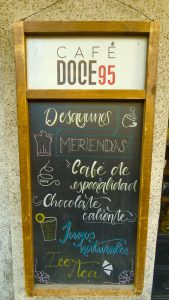 CAFÉ
DOCE95
Desayunos
MERIENDAS
Café de
especialidad
Chocolate
caliente
Jugos
naturales
Ice
tea